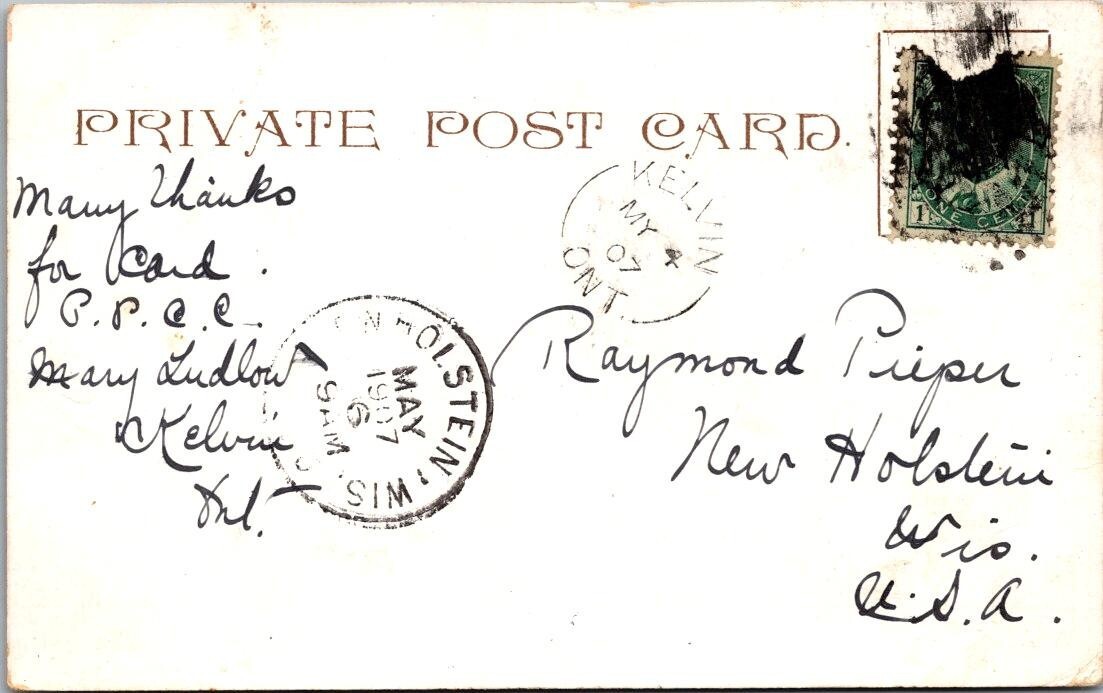 PRIVATE POST CARD.
Many thanks
for Card.
P.P.C.C.
Mary Ludlow
Kelvin
Ont.
KELVIN
MY 4
07
ONT.
HOLSTEIN, WIS.
MAY
6
1907
9 AM
ONE CENT
1 1
Raymond Pieper
New Holstein
Wis.
U.S.A.